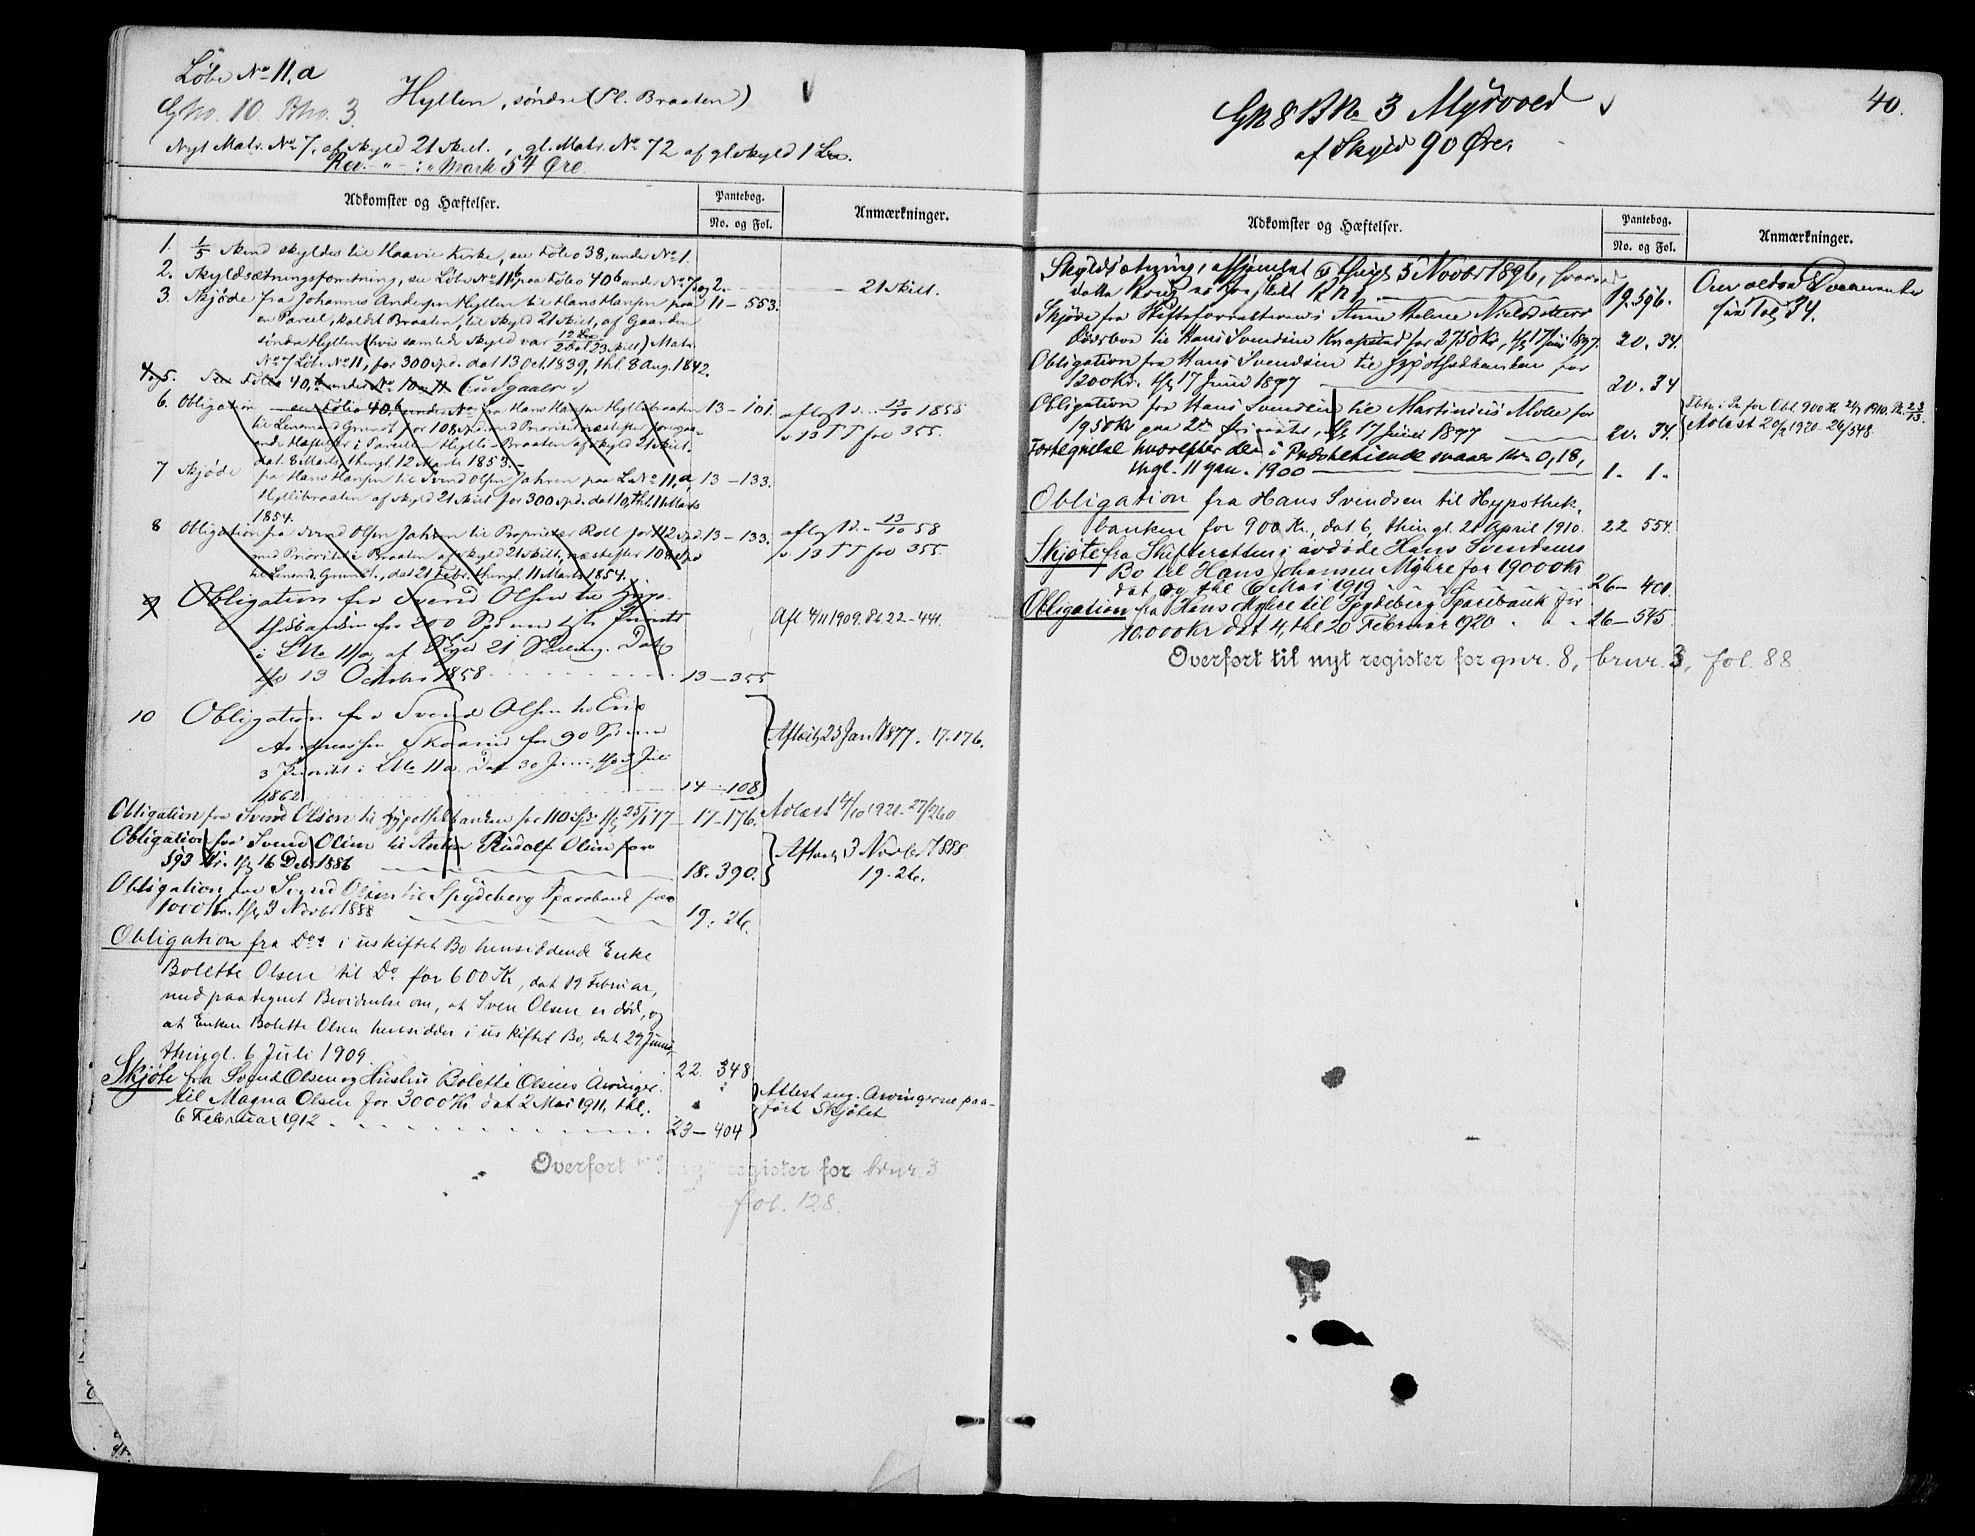 Løbe No 11.a
Gno. 10. Bno. 3.
Hyllen, søndre (Pl. Braaten)
Nyt Matr. No 7, af Skyld 21 Skill., gl. Matr. No 72 af gl Skyld 1
Rev. - " - : " Mark 54 Øre.
Adkomster og Hæftelser.
Pantebog.
No. og Fol.
Anmærkninger.
1. 1/5 skyldes til Haavie Kirke, see Folio 38, under No 1.
2. Skyldsætningsforretning, see Løbe No 11b, paa Folio 40b under No 7 og 2. 21 Skill.
3. Skjøde fra Johannes Andersen Hyllen til Hans Hansen paa 11 - 553.
en Parcel, kaldet Braaten, til Skyld 21 Skill, af Gaarden
søndre Hyllen (hvis samlede Skyld var 2 Dal 23 Skill) Matr.
No 7 Løbe No 11, for 300 Spd. dat 13 Oct. 1839, thl. 8 Aug. 1842.
4 og 5. See Folio 40, b under No 10 & 11 (udgaaer)
6. Obligation fra Hans Hansen Hyllebraaten 13 - 101. aflyst d. 13/10 1858
til Lensmand Grundt for 108 Spd. med Prioritet næstefter foregaa- 13 TT fol 355.
ende Hæftelser i Parcellen Hylle-Braaten af Skyld 21 Skill.
dat. 8 Marts, thingl. 12 Marts 1853.
7 Skjøde fra Hans Hansen til Svend Olsen Jahren paa L No 11, a 13 - 133.
Hyllebraaten af Skyld 21 Skill for 300 Spd. dat 10, thl. 11 Marts
1854.
8 Obligation fra Svend Olsen Jahren til Proprietær Roll for 112 Spd. 13 - 133. aflyst d. 13/10 58
med Prioritet i Braaten af Skyld 21 Skill, næstefter 108 Spd 13 TT fol 355.
til Lensmd. Grundt., dat 21 Febr. thingl. 11 Marts 1854.
9 Obligation fra Svend Olsen til Hypo-
thekbanken for 200 Spd med 1ste Priorit. Afl 4/11 1909. Pb 22 - 441.
i L No 11a, af Skyld 21 Skilling. Dat
13 October 1858 13 - 355
10 Obligation fra Svend Olsen til Eric
Andreassen Skaarud for 90 Spd med Aflæst 25 Jan 1877. 17. 176.
3 Priorit i L No 11a. Dat 30 Juni, 3 Juli
1862 14 - 108
Obligation fra Svend Olsen til Hypothekbanken for 110 Spd 25/1 77 17 - 176. Avlæst 4/10 1921 - 27/260.
Obligation fra Svend Olsen til Anton Rudolf Olsen for
593 Kr. 16 Debr 1886 18. 390. Aflæst 3 Novbr 1888
Obligation fra Svend Olsen til Spydeberg Sparebank for 19 - 26.
1000 Kr. 3 Novbr 1888 19. 26.
Obligation fra Dos i uskiftet Bo hensiddende Enke
Bolette Olsen til Do for 600 Kr, dat 19 Februar,
med paategnet Bevidnelse om, at Sven Olsen er død, og
at Enken Bolette Olsen hensidder i uskiftet Bo, dat 29 Juni,
thingl. 6 Juli 1909. 22 348
Skjøte fra Svend Olsen og Hustru Bolette Olsens Arvinger
til Magna Olsen for 3000 Kr dat 2 Mai 1911, thl. Attest ang. Arvingerne paa-
6 Februar 1912 23 - 404 ført Skjøtet
Overført til nyt register for brnr. 3
fol. 128.
40.
GN 8 BNo 3 Myrvold
af Skyld 90 Øre.
Adkomster og Hæftelser.
Pantebog.
No. og Fol.
Anmærkninger.
Skyldsætning, afhjemlet & thingl 5 Novbr 1896, 19. 596.
Om ældre Documenter
see Fol 34.
Skjøde fra Skifteforvalteren i Anne Helene Nielsdatters
Dødsbo til Hans Svendsen Knapstad for 2750 Kr, 17 Juni 1897. 20. 34.
Obligation fra Hans Svendsen til Hypothekbanken for
1200 Kr. 17 Juni 1897 20. 34
Obligation fra Hans Svendsen til Martinius Mobe for
1950 Kr paa 2den Prioritet, 17 Juni 1897 20. 34. Avlæst 20/2 1920 26/548.
Fortegnelse hvorefter der i Præstetiende svares Kr 0,18,
thgl. 11 Jan. 1900 1. 1.
Obligation fra Hans Svendsen til Hypothek-
banken for 900 Kr, dat 6, thingl. 21 April 1910 22 554.
Skjøte fra Skifteretten i avdøde Hans Svendsens
Bo til Hans Johansen Myhre for 19000 Kr
dat og thl 6 Mai 1919 26 - 401
Obligation fra Hans Myhre til Spydeberg Sparebank for
10.000 Kr dat 4, thl 20 Februar 1920 26 - 545
Overført til nyt register for gnr. 8, brnr. 3, fol. 88